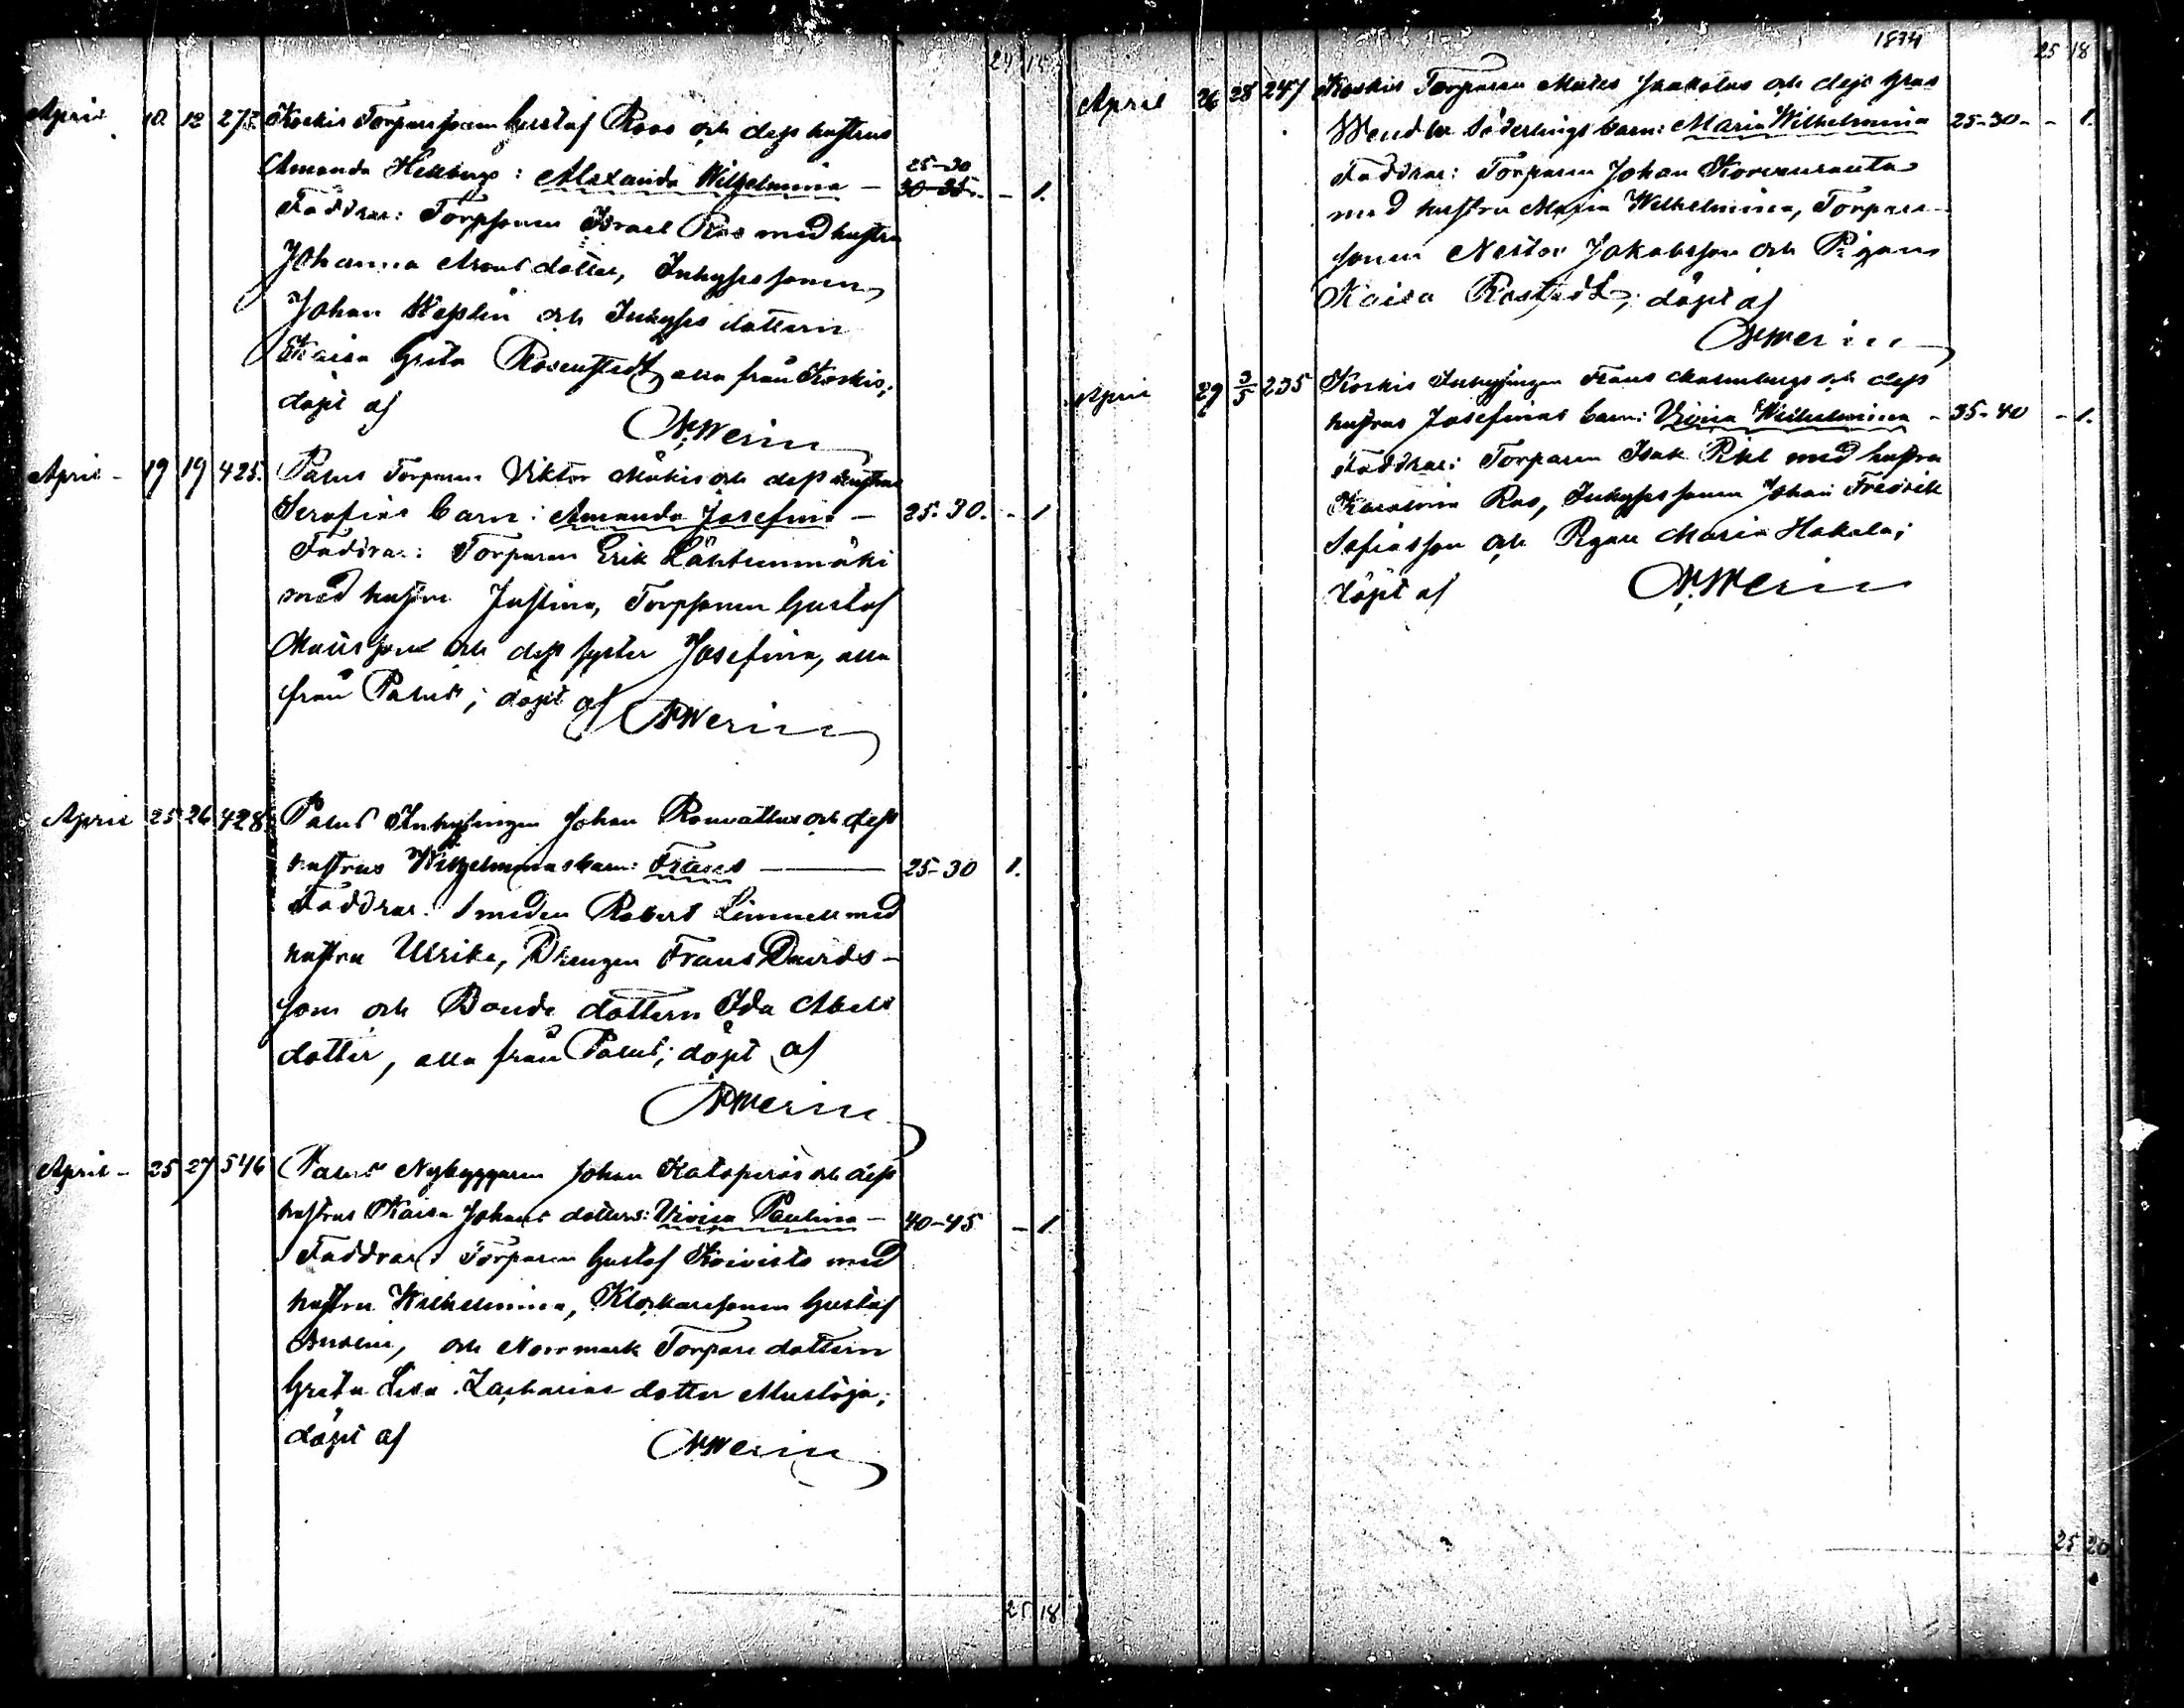 24 15
April 10. 12 273. Koskis Torparesonen Gustaf Roos och dess hustrus
Amanda Hellbergs: Alexandra Wilhelmina — 25-30 30-35. - 1.
Faddrar: Torpsonen Israel Ros med hustru
Johanna Arons dotter, Inhysessonen
Johan Weplin och Inhyses dottern
Kaisa Greta Rosenstedt, alla från Koskis;
döpt af
Werin
April - 19 19 425. Palus Torparen Viktor Mäkis och dess hustrus
Serafias barn: Amanda Josefina — 25-30. - 1
Faddrar: Torparen Erik Lähteenmäki
med hustru Justina, Torpsonen Gustaf
och dess syster Josefina, alla
från Palus; döpt af Werin
April 25 26 428 Palus Inhysingen Johan och dess
hustrus Wilhelminas barn: Frans — 25-30 1.
Faddrar: Smeden Robert Limnell med
hustru Ulrika, Drengen Frans Davids-
son och Bonde dottern Ida Abels
dotter, alla från Palus; döpt af
Werin
April - 25 27 546 Palus Nybyggaren Johan Katoperäs och dess
hustrus Kaisa Johans dotters: Viviia Paulina — 40-45 - 1
Faddrar: Torparen Gustaf Koivisto med
hustru Wilhelmina, Klockaresonen Gustaf
och Norrmark Torpare dottern
Greta Lisa Zacharias dotter Mustoja;
döpt af Werin
25 18
1874 25 18
April 26 28 247 Koskis Torparen Matts Jaakolas och dess hrus
Wendla Söderlings barn: Maria Wilhelmina 25-30- - 1.
Faddrar: Torparen Johan Korvenranta
med hustru Maria Wilhelmina, Torpare
sonen Nestor Jakobsson och Pigan
Kaisa Rostedt; döpt af
Werin
April 29 3/5 235 Koskis Inhysingen Frans Malmbergs och dess
hustrus Josefinas barn: Viviia Wilhelmina - 35-40 - 1.
Faddrar: Torparen Isak Pihl med hustru
Karolina Ros, Inhysessonen Johan Fredrik
Sofiasson och Pigan Maria Hakala;
döpt af Werin
25 20